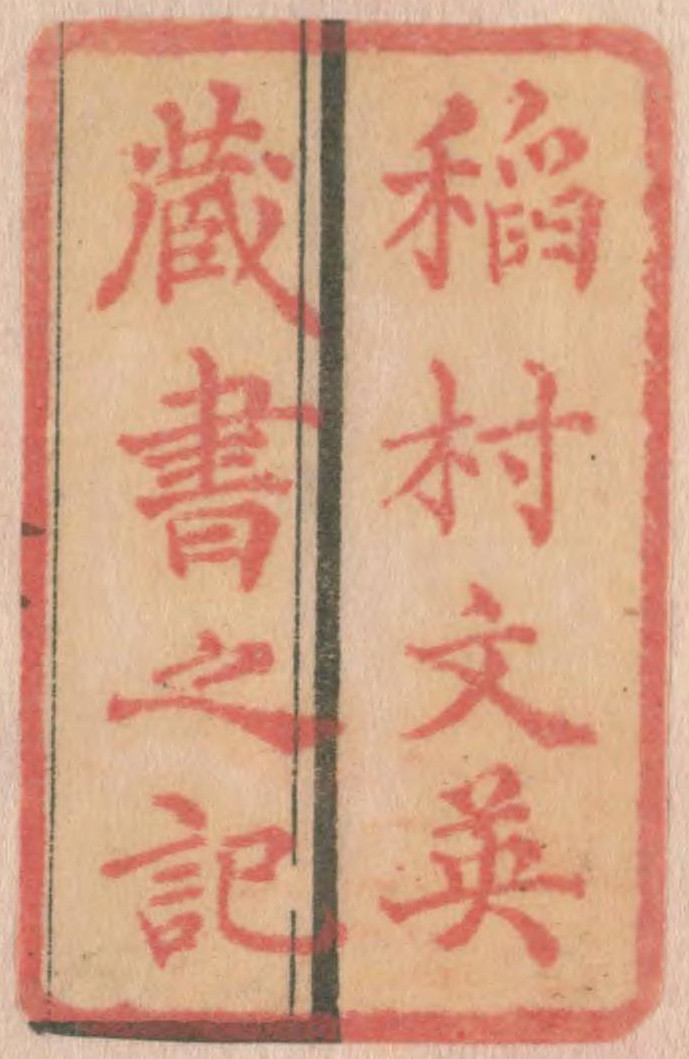 稻村文英
蔵書之記